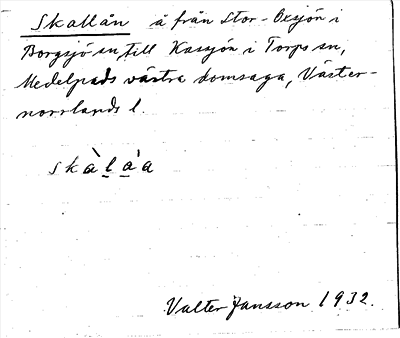 Skallån å från Stor-Oxsjön i
Borgsjö sn till Kassjön i Torps sn,
Medelpads västra domsaga, Väster-
norrlands l.
skàlàa
Valter Jansson 1932.